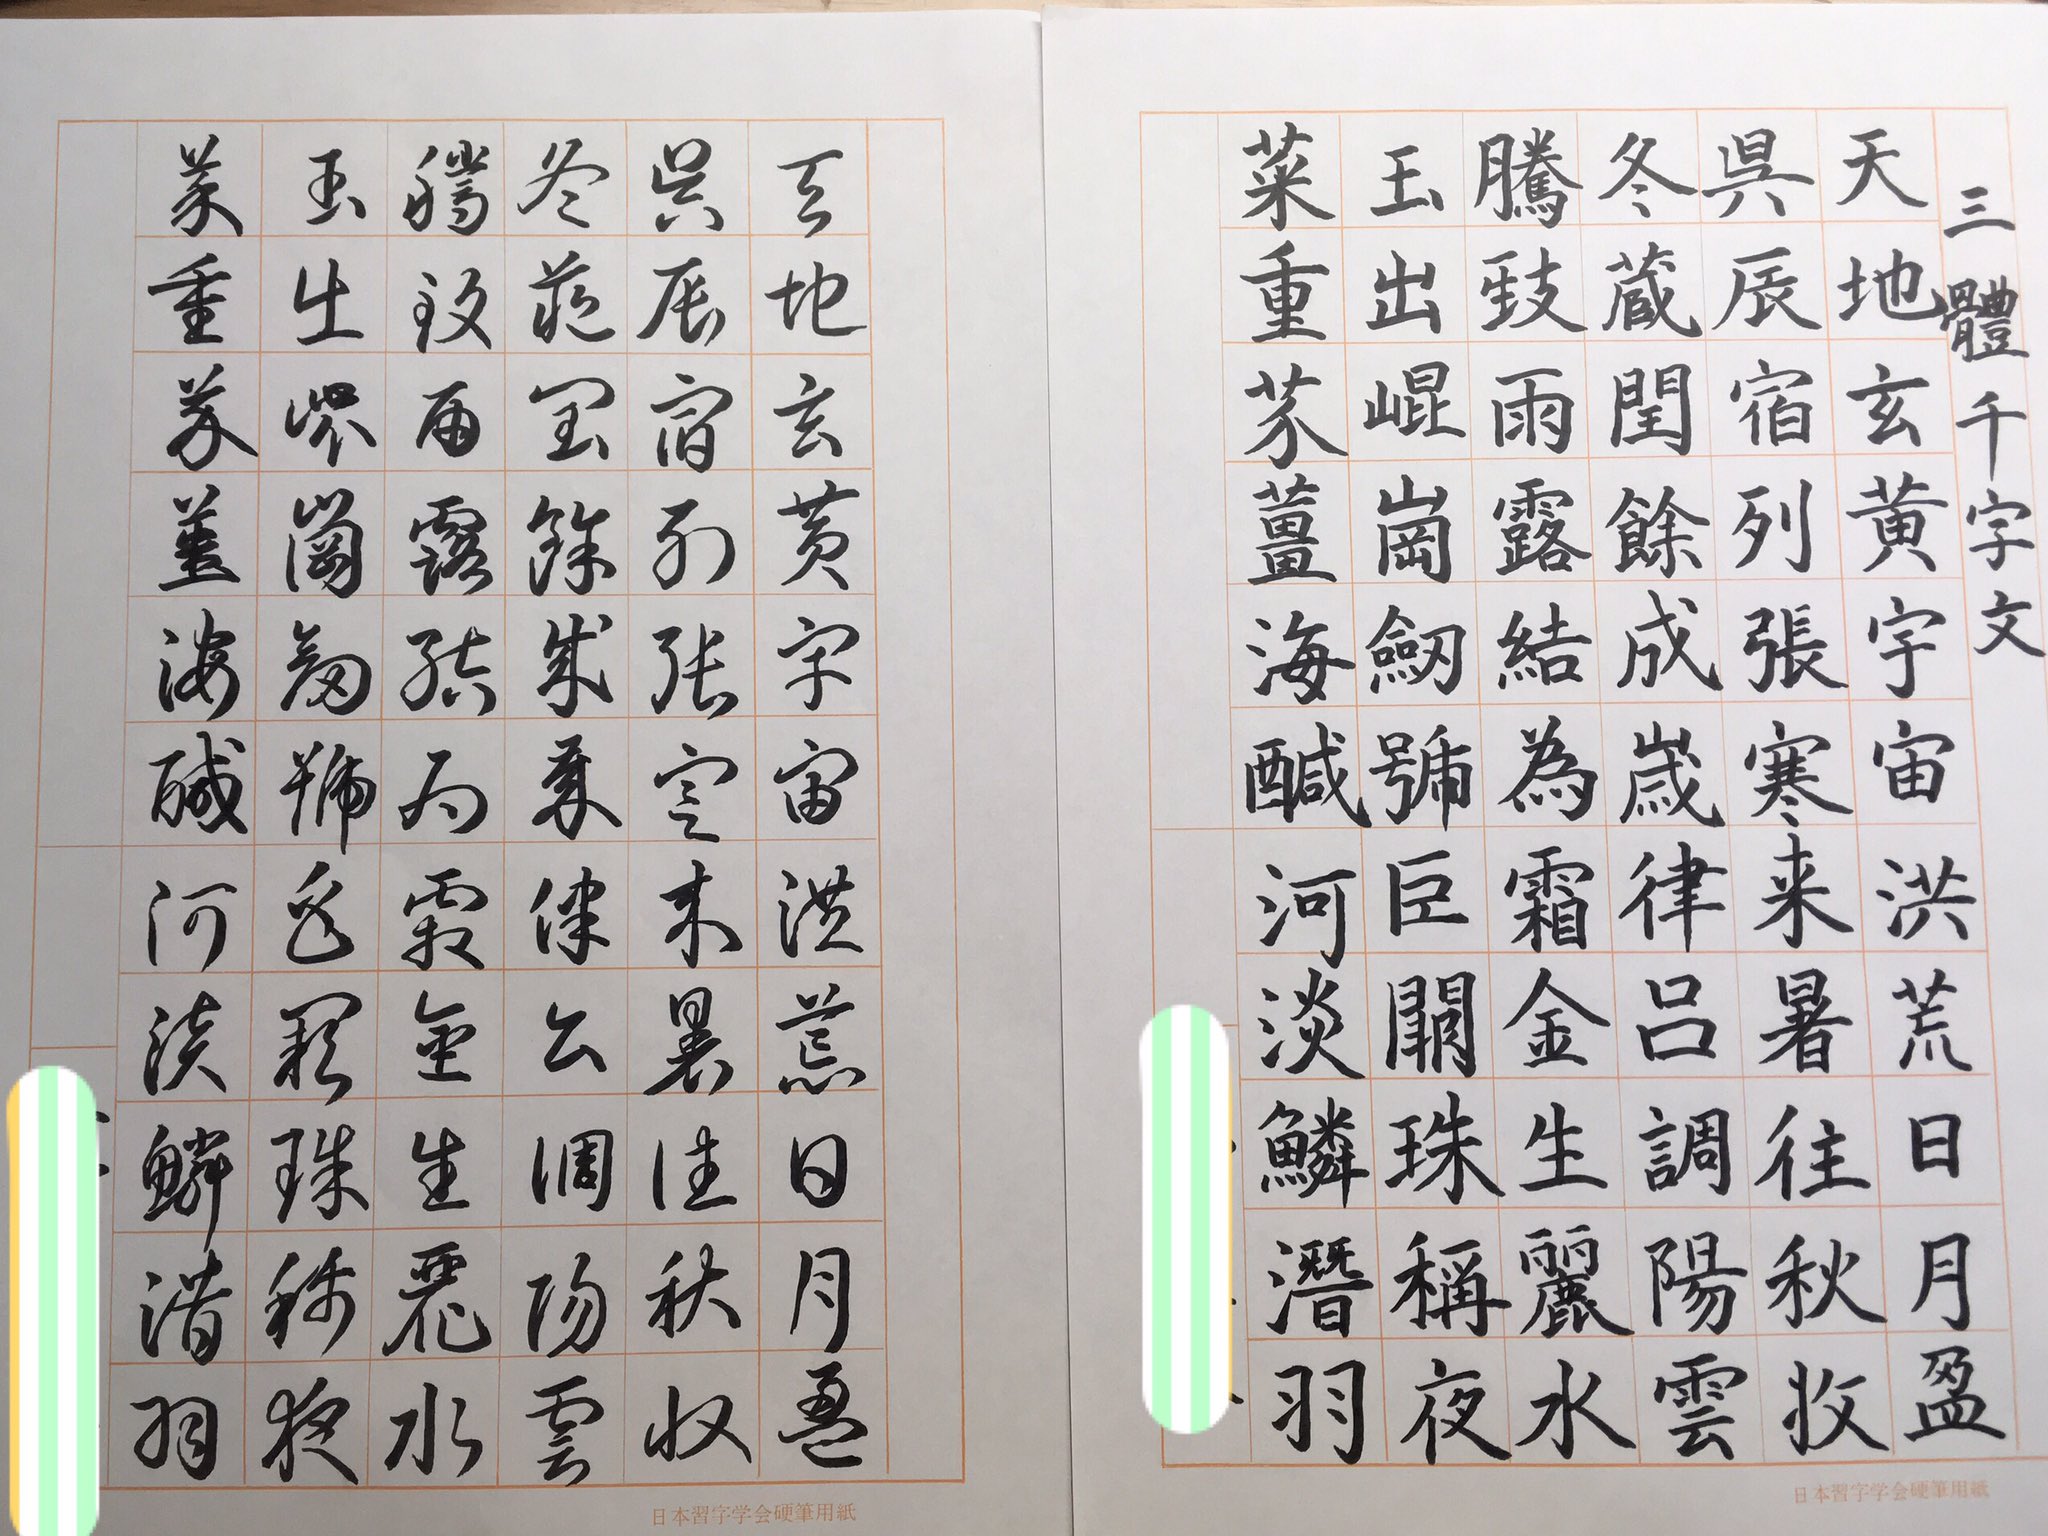 三體千字文
天地玄黄宇宙洪荒日月盈
昃辰宿列張寒来暑往秋收
冬蔵閏餘成歳律呂調陽雲
騰致雨露結為霜金生麗水
玉出崐崗劔號巨闕珠稱夜
菜重芥薑海醎河淡鱗潛羽
日本習字学会硬筆用紙
天地玄黄宇宙洪荒日月盈
昃辰宿列張寒来暑往秋收
冬蔵閏餘成歳律呂調陽雲
騰致雨露結為霜金生麗水
玉出崐崗劔號巨闕珠稱夜
菜重芥薑海醎河淡鱗潛羽
日本習字学会硬筆用紙